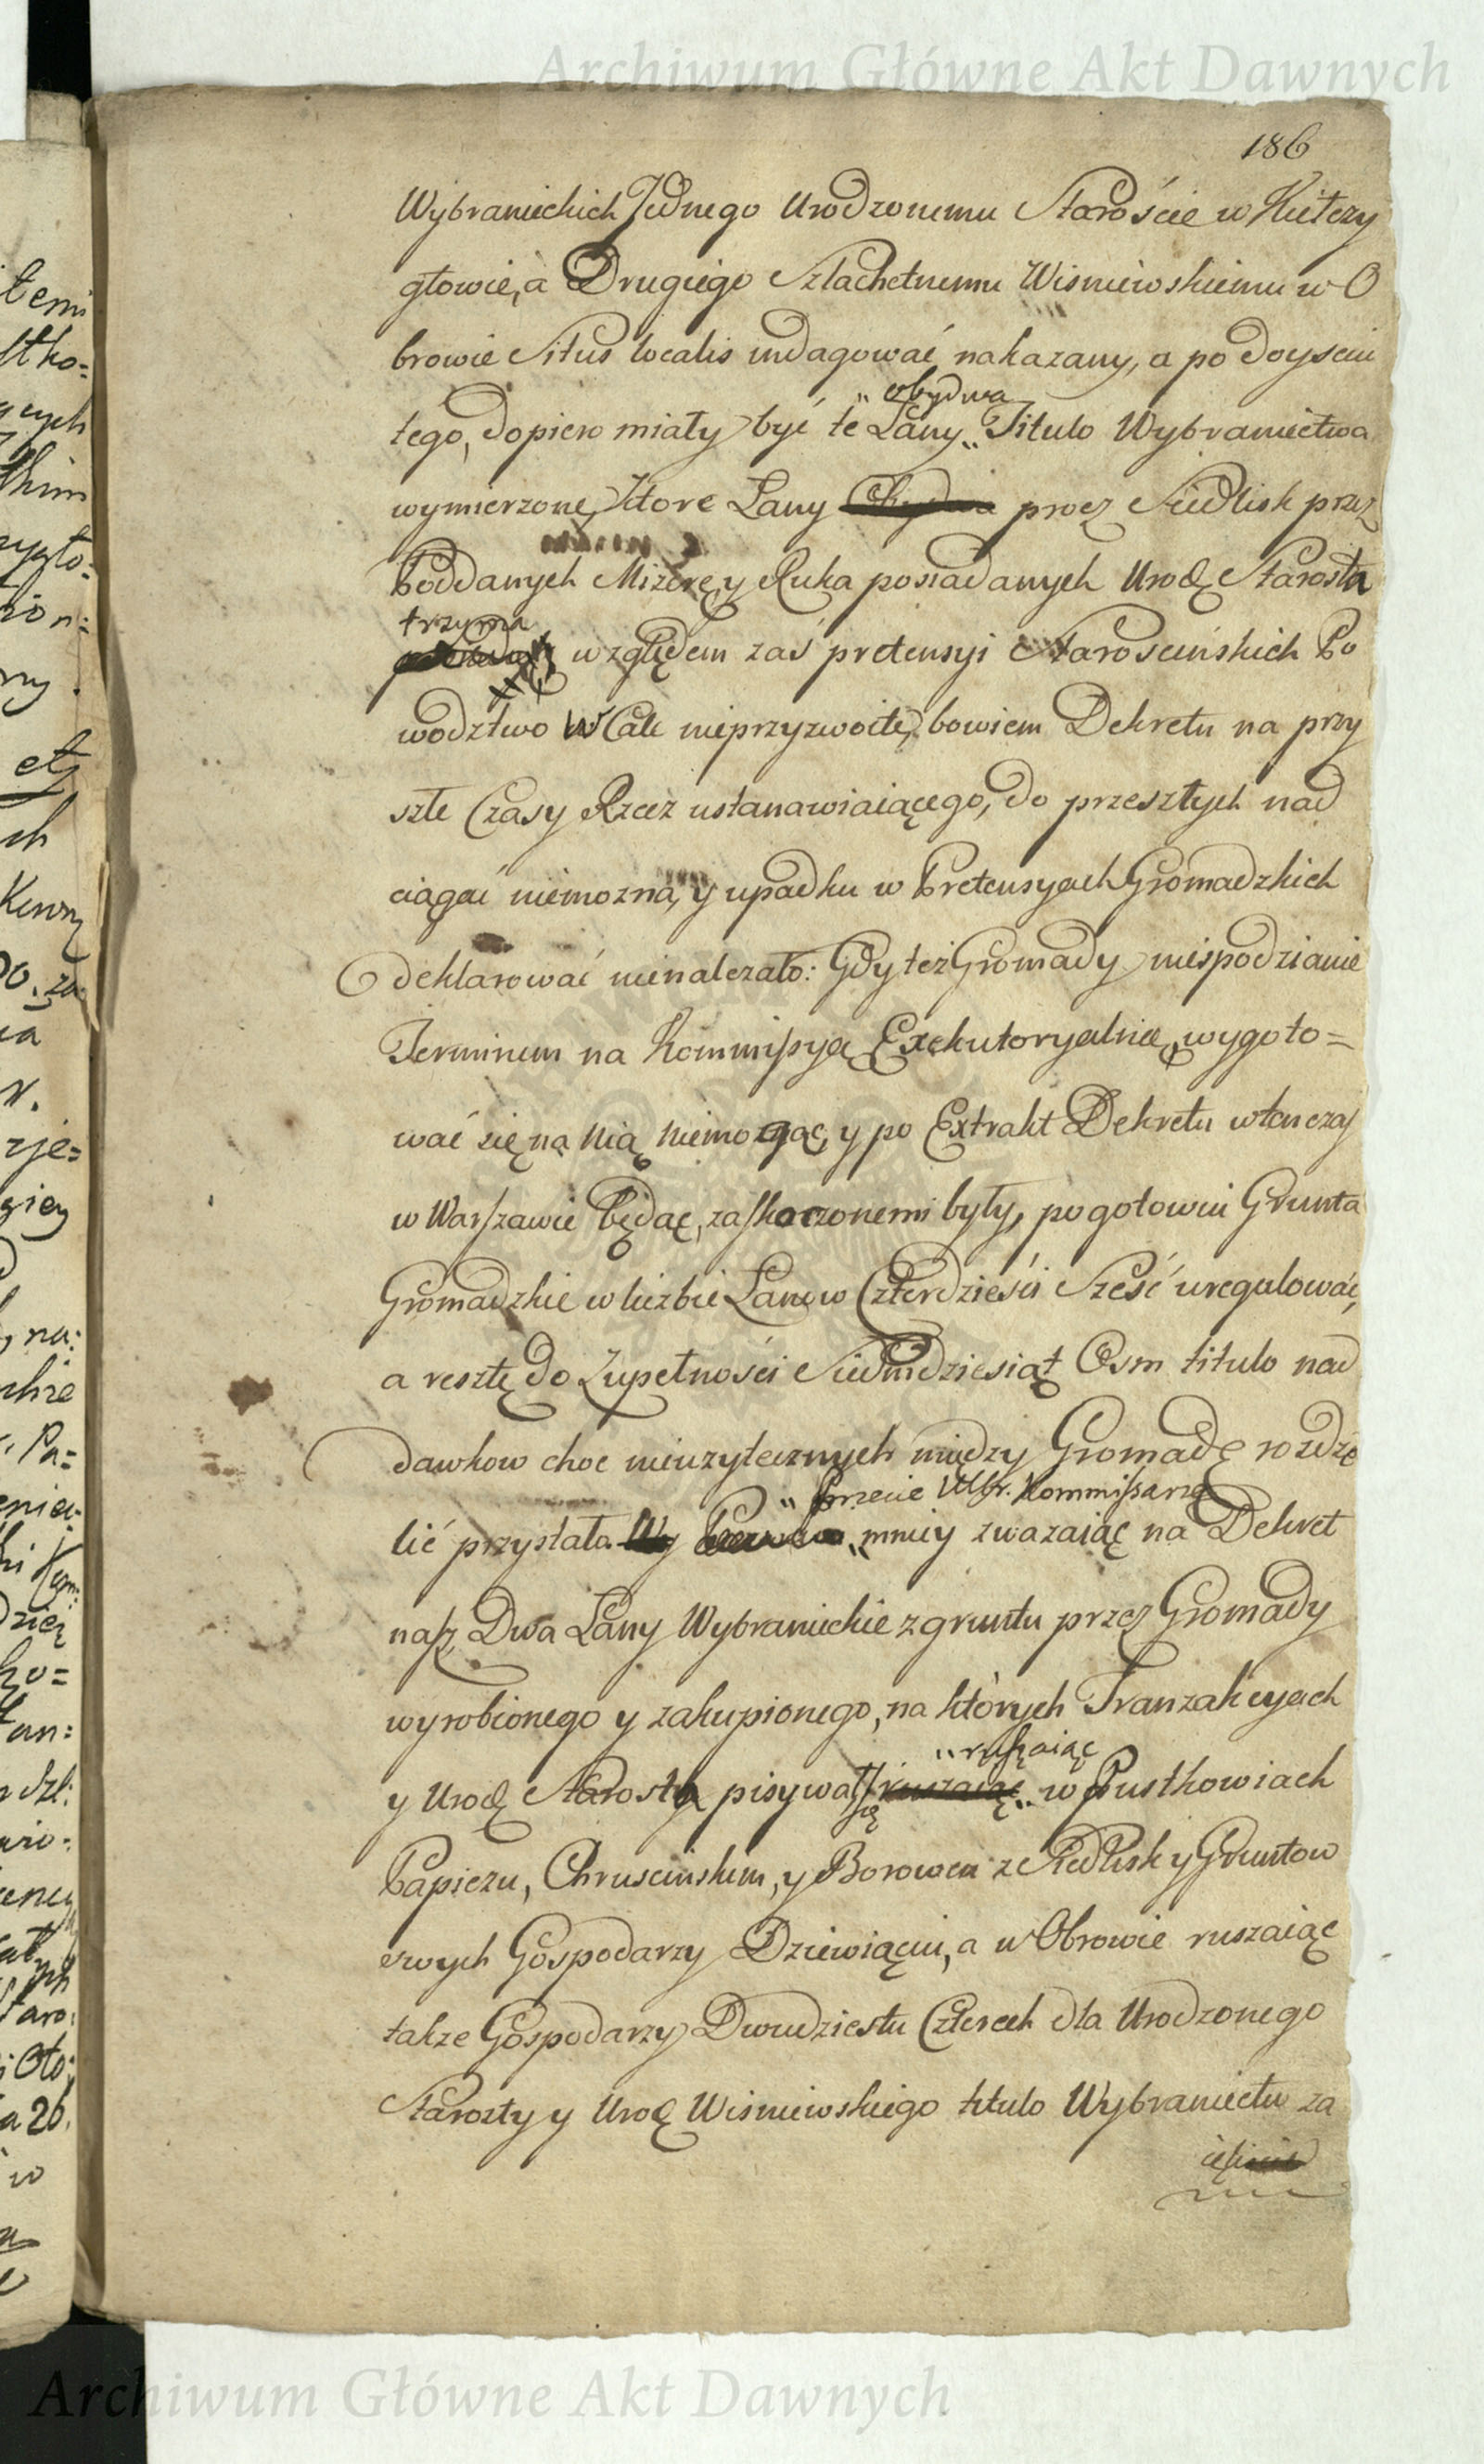 Archiwum Główne Akt Dawnych
186
Wybranieckich Jednego Urodzonemu Starośćie w Kiełczy
głowie, a Drugiego Szlachetnemu Wisniewskiemu w O
browie Situs localis indagować nakazany, a po doysciu
"obydwa
tego, dopiero miały być te Łany" Titulo Wybraniectwa
wymierzone, ktore Łany Obydwa procz Siedlisk przez
Poddanych Mizerę y Ruka posiadanych Urodz Starosta
trzyma
względem zaś pretensyi Starościńskich Po
wodztwo w Cale nieprzyzwoite, bowiem Dekretu na przy
szłe Czasy Rzecz ustanawiaiącego, do przeszłych nad
ciągać niemozna, y upadku w Pretensyach Gromadzkich
deklarować nienalezało: Gdy też Gromady niespodzianie
Terminem na Kommissyą Exekutoryalną, wygoto=
wać się na nią niemogąc, y po Extrakt Dekretu wtenczas
w Warszawie będąc, zaskoczonemi były, pogotowiu Grunta
Gromadzkie w liczbie Łanow Czterdzieści Sześć uregulować,
a resztę do Zupełności Siedmdziesiąt Osm titulo nad
dawkow choc nieuzytecznych między Gromadę rozdzie
"Przecie WW. Kommissarze
lić przystało. mniey zwazaiąc na Dekret
nasz, Dwa Łany Wybranieckie z gruntu przez Gromady
wyrobionego y zakupionego, na których Tranzakcyach
"ruszaiąc
y Urodz Starosta pisywał się ruszaiąc" w Pustkowiach
Papiezu, Chruscinskim, y Borowcu z Siedlisk y Gruntow
swych Gospodarzy Dziewiąciu, a w Obrowie ruszaiąc
takze Gospodarzy Dwudziestu Czterech dla Urodzonego
Starosty y Urodz Wisniewskiego titulo Wybraniectw za
Archiwum Główne Akt Dawnych